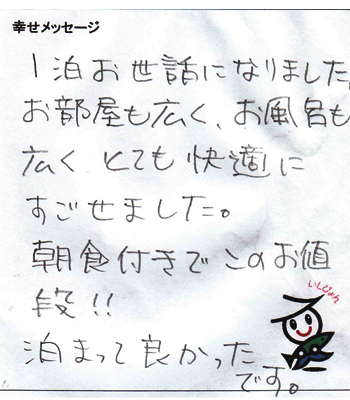 幸せメッセージ
1泊お世話になりました。
お部屋も広く、お風呂も
広く とても 快適に
すごせました。
朝食付きで このお値
段!!
泊まって良かった
です。
いしぴょん